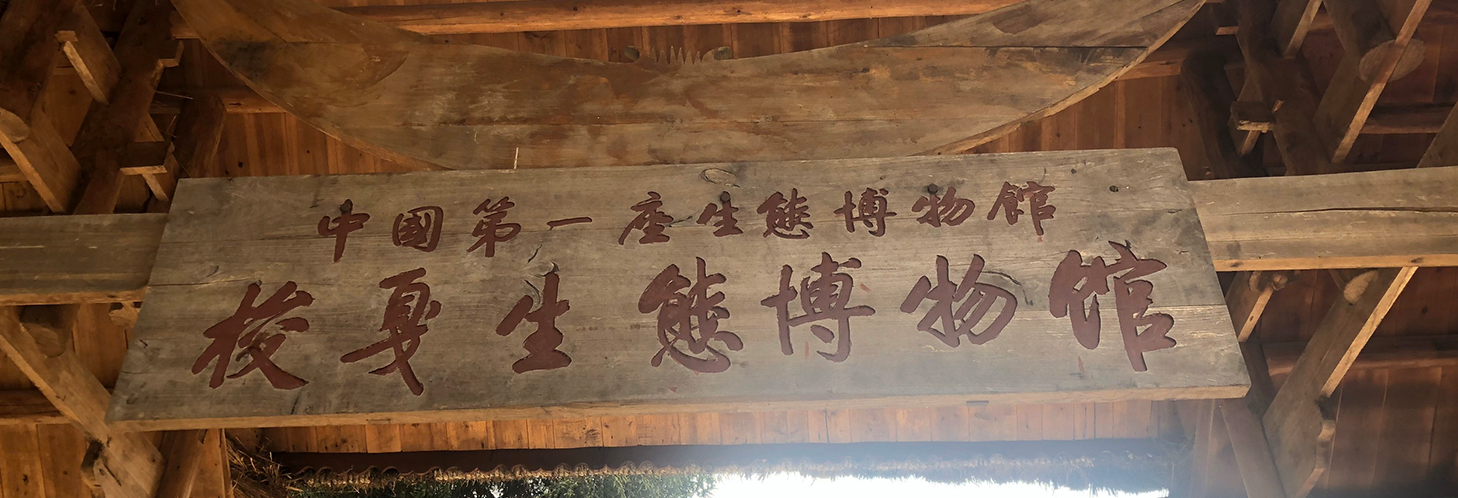 中國第一座生態博物館
梭戛生態博物馆